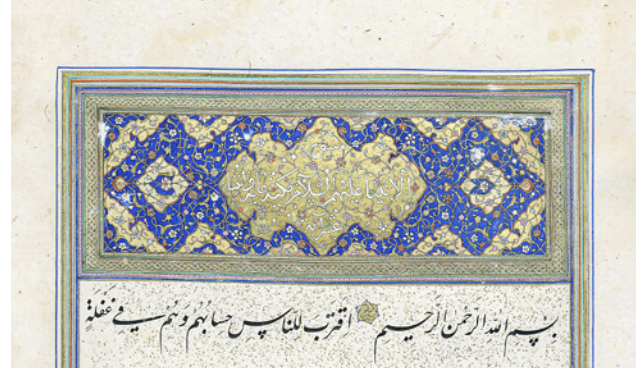 سورة
الانبيا عليهم السلام
بسم الله الرحمن الرحيم اقتربَ للناسِ حسابهُم وَهُم في غَفلةٍ